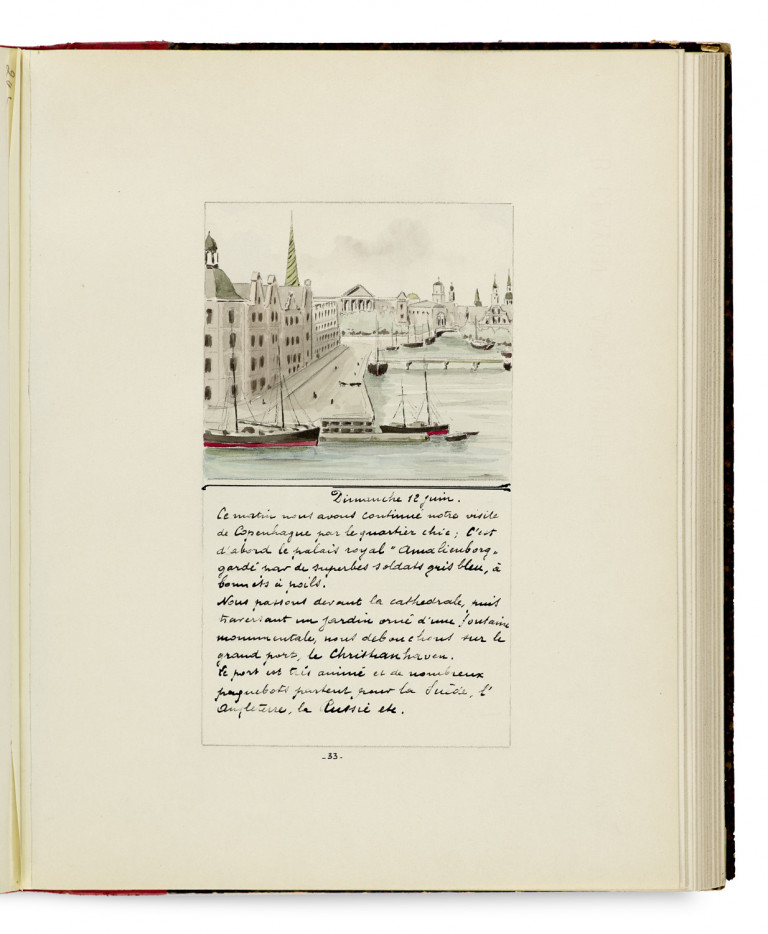 Dimanche 12 juin.
Ce matin nous avons continué notre visite
de Copenhague par le quartier chic ; C'est
d'abord le palais royal "Amalienborg"
gardé par de superbes soldats gris bleu, à
bonnets à poils.
Nous passons devant la cathedrale, puis
traversant un jardin orné d'une fontaine
monumentale, nous débouchons sur le
grand port, le Christianhaven.
Le port est très animé et de nombreux
paquebots partent pour la Suède, l'
Angleterre, la Russie etc.
- 33 -